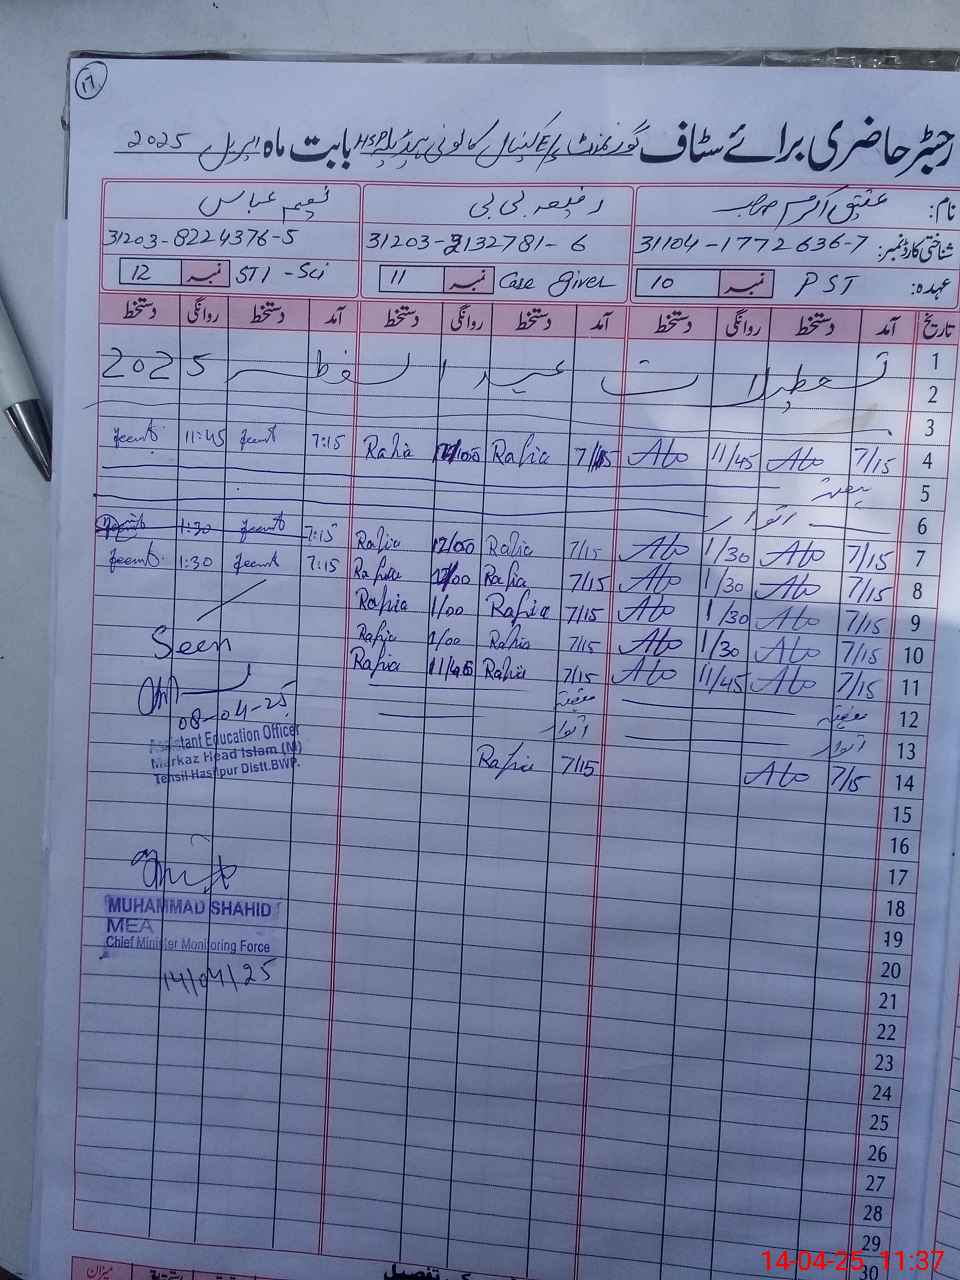 ۱۶
رجسٹر حاضری برائے سٹاف گورنمنٹ E/پ کینال کالونی ہیڈ HSP بابت ماہ اپریل 2025
نام: عتیق اکرم صاحب رفیعہ بی بی نعیم عباس
شناختی کارڈ نمبر: 31104-1772636-7 31203-3132781-6 31203-8224376-5
عہدہ: PST نمبر 10 Case Giver نمبر 11 STI-Sci نمبر 12
تاریخ آمد دستخط روانگی دستخط آمد دستخط روانگی دستخط آمد دستخط روانگی دستخط
1 تعطیلات عید الفطر 2025
2
3
4 7/15 Ato 11/45 Ato 7/15 Rafia Rafia 7:15 11:45
5 ہفتہ
6 اتوار
7 7/15 Ato 1/30 Ato 7/15 Rafia 12/00 Rafia 7:15 1:30
8 7/15 Ato 1/30 Ato 7/15 Rafia 12/00 Rafia 7:15 1:30
9 7/15 Ato 1/30 Ato 7/15 Rafia 1/00 Rafia
10 7/15 Ato 1/30 Ato 7/15 Rafia 1/00 Rafia
11 7/15 Ato 11/45 Ato 7/15 Rafia 11/45 Rafia
12 ہفتہ ہفتہ
13 اتوار اتوار
14 7/15 Ato 7/15 Rafia
Seen
08-04-25
Assistant Education Officer
Markaz Head Islam (M)
Tehsil Hasilpur Distt.BWP.
15
16
17
18
19
20
21
22
23
24
25
26
27
28
29
30
MUHAMMAD SHAHID
MEA
Chief Minister Monitoring Force
14/04/25
میزان
کی تفصیل
14-04-25 11:37